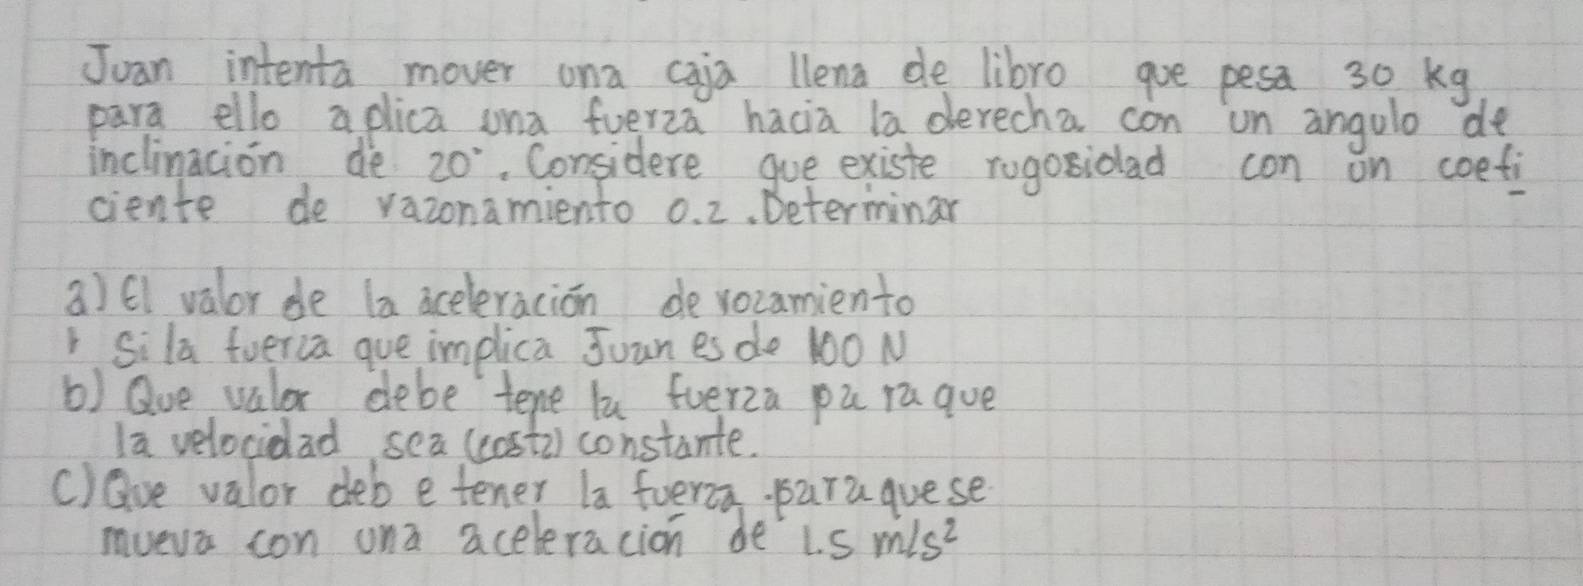 Juan intenta mover una caja llena de libro que pesa 30 kg
para ello aplica una fuerza hacia la derecha con un angulo de
inclinación de 20°. Considere que existe rugosidad con un coefi
ciente de razonamiento 0.2. Determinar
a) El valor de la aceleración de rozamiento
si la fuerza que implica Juan es de 100 N
b) Que valor debe tene la fuerza para que
la velocidad sea (cost2) constante.
c) Que valor debe tener la fuerza para que se
mueva con una aceleración de 1.5 m/s²